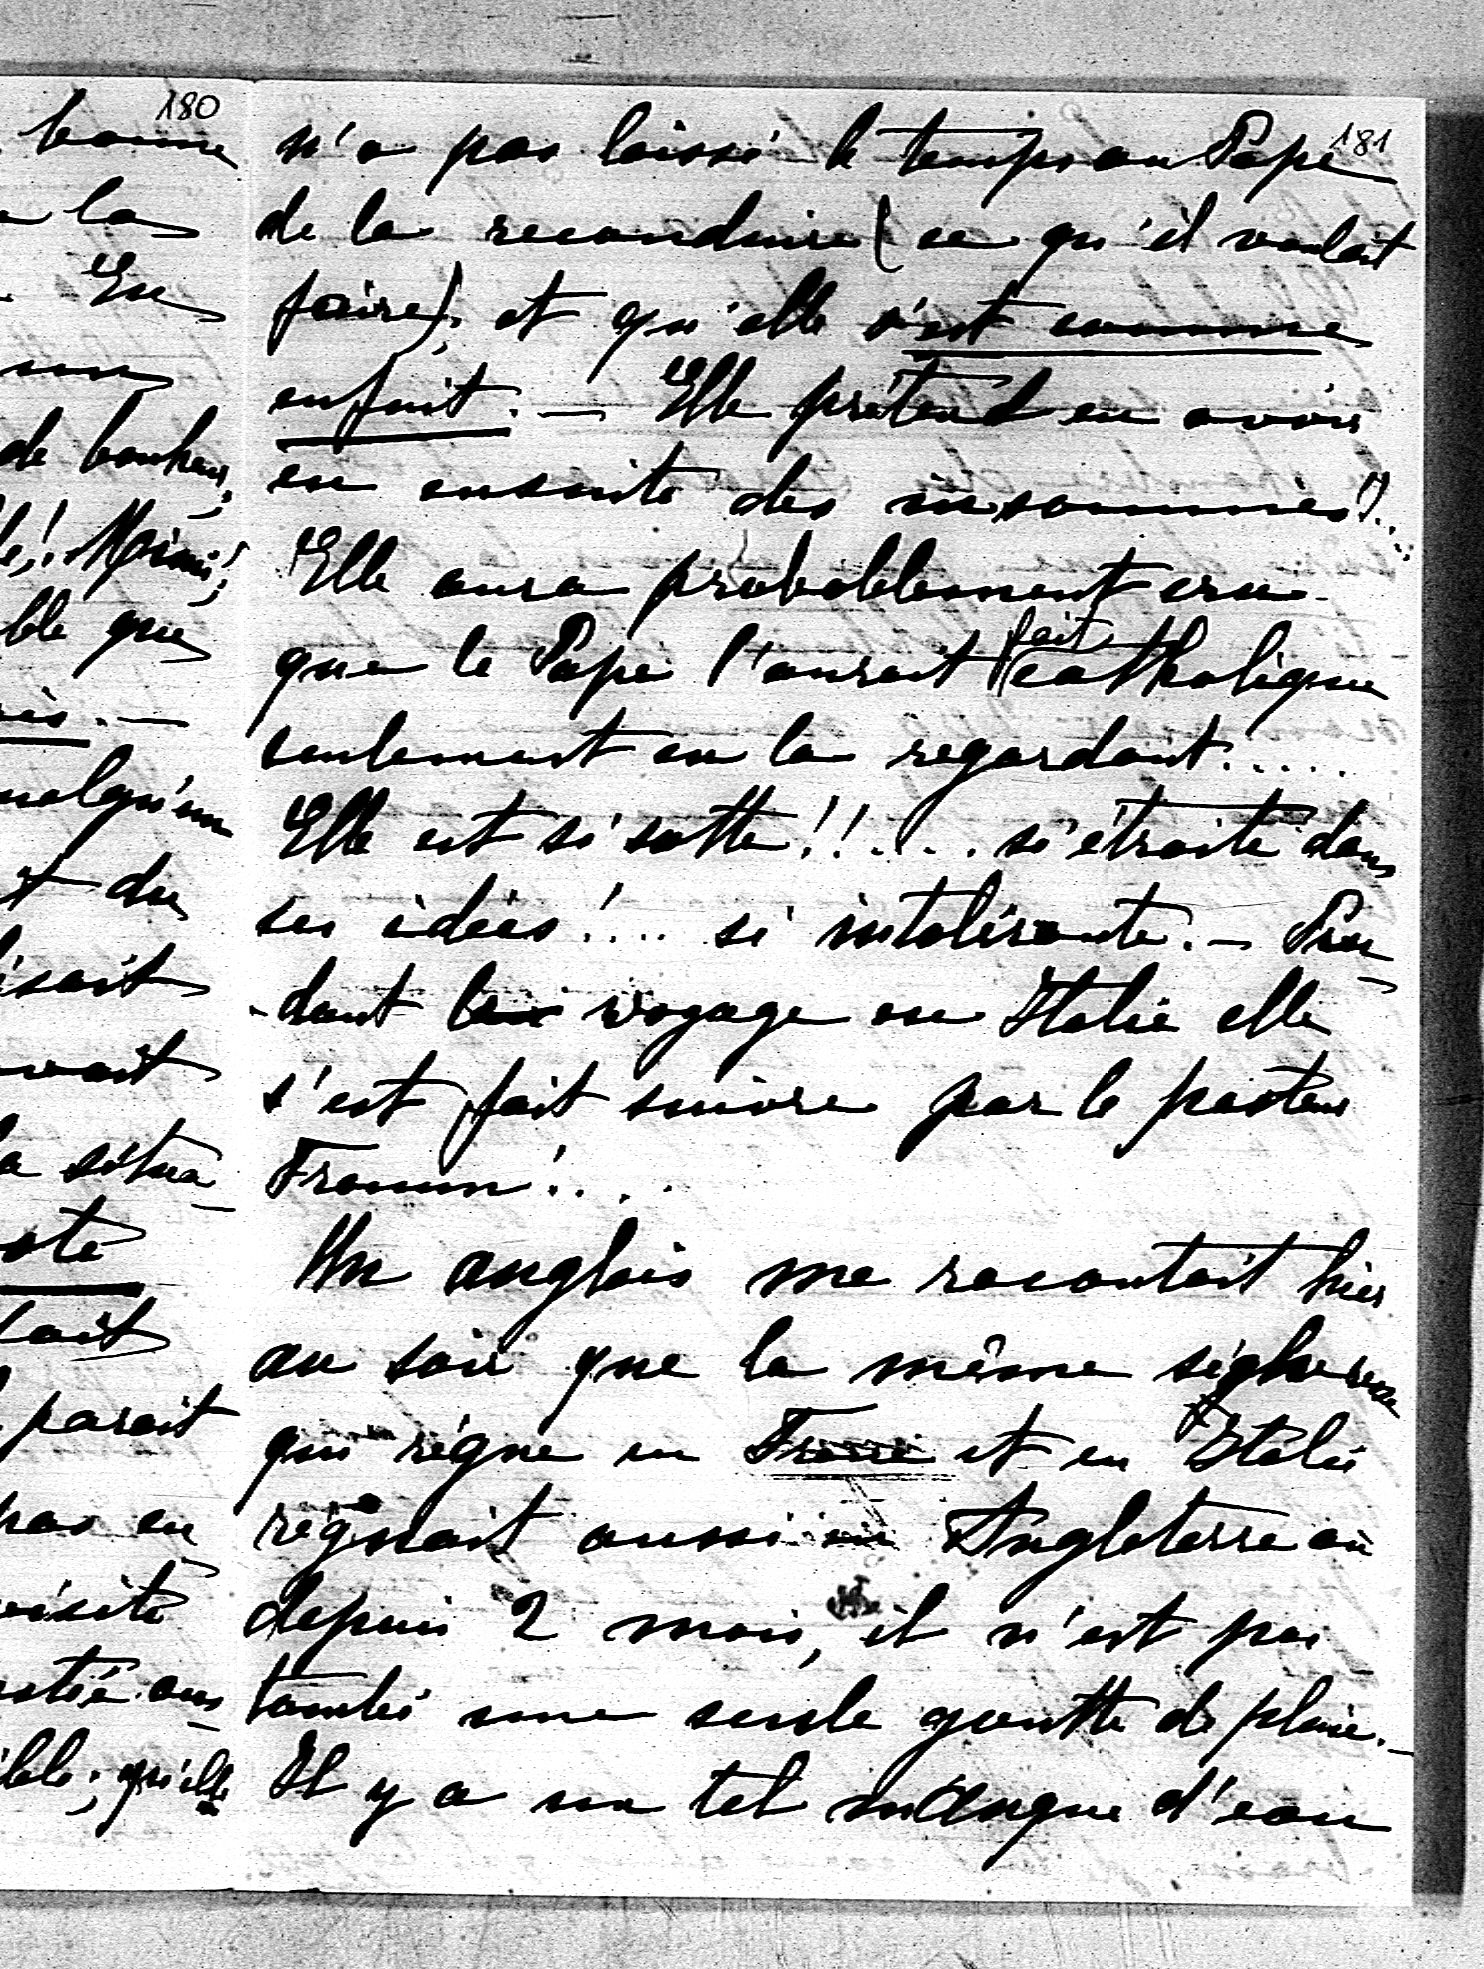 180
bonne
la
En
de bonheur,
ble que
quelqu'un
t du
isait
vait
la situa-
oté
fait
parait
pas en
visite
ible; qu'elle
181
n'a pas laissé le temps au Pape
de la reconduire (ce qu'il voulait
faire), et qu'elle s'est comme
enfuit. — Elle prétend en avoir
eu ensuite des insomnies!)...
Elle aura probablement cru
que le Pape l'aurait fait catholique
seulement en la regardant.....
Elle est si sotte!!.... si étroite dans
ses idées!... si intolérante. — Pen-
-dant leur voyage en Italie elle
s'est fait suivre par le pasteur
Fromm!...
Un anglais me racontait hier
au soir que la même sécheresse
qui règne en France et en Italie
régnait aussi en Angleterre où
depuis 2 mois, il n'est pas
tombé une seule goutte de pluie. —
Il y a un tel manque d'eau